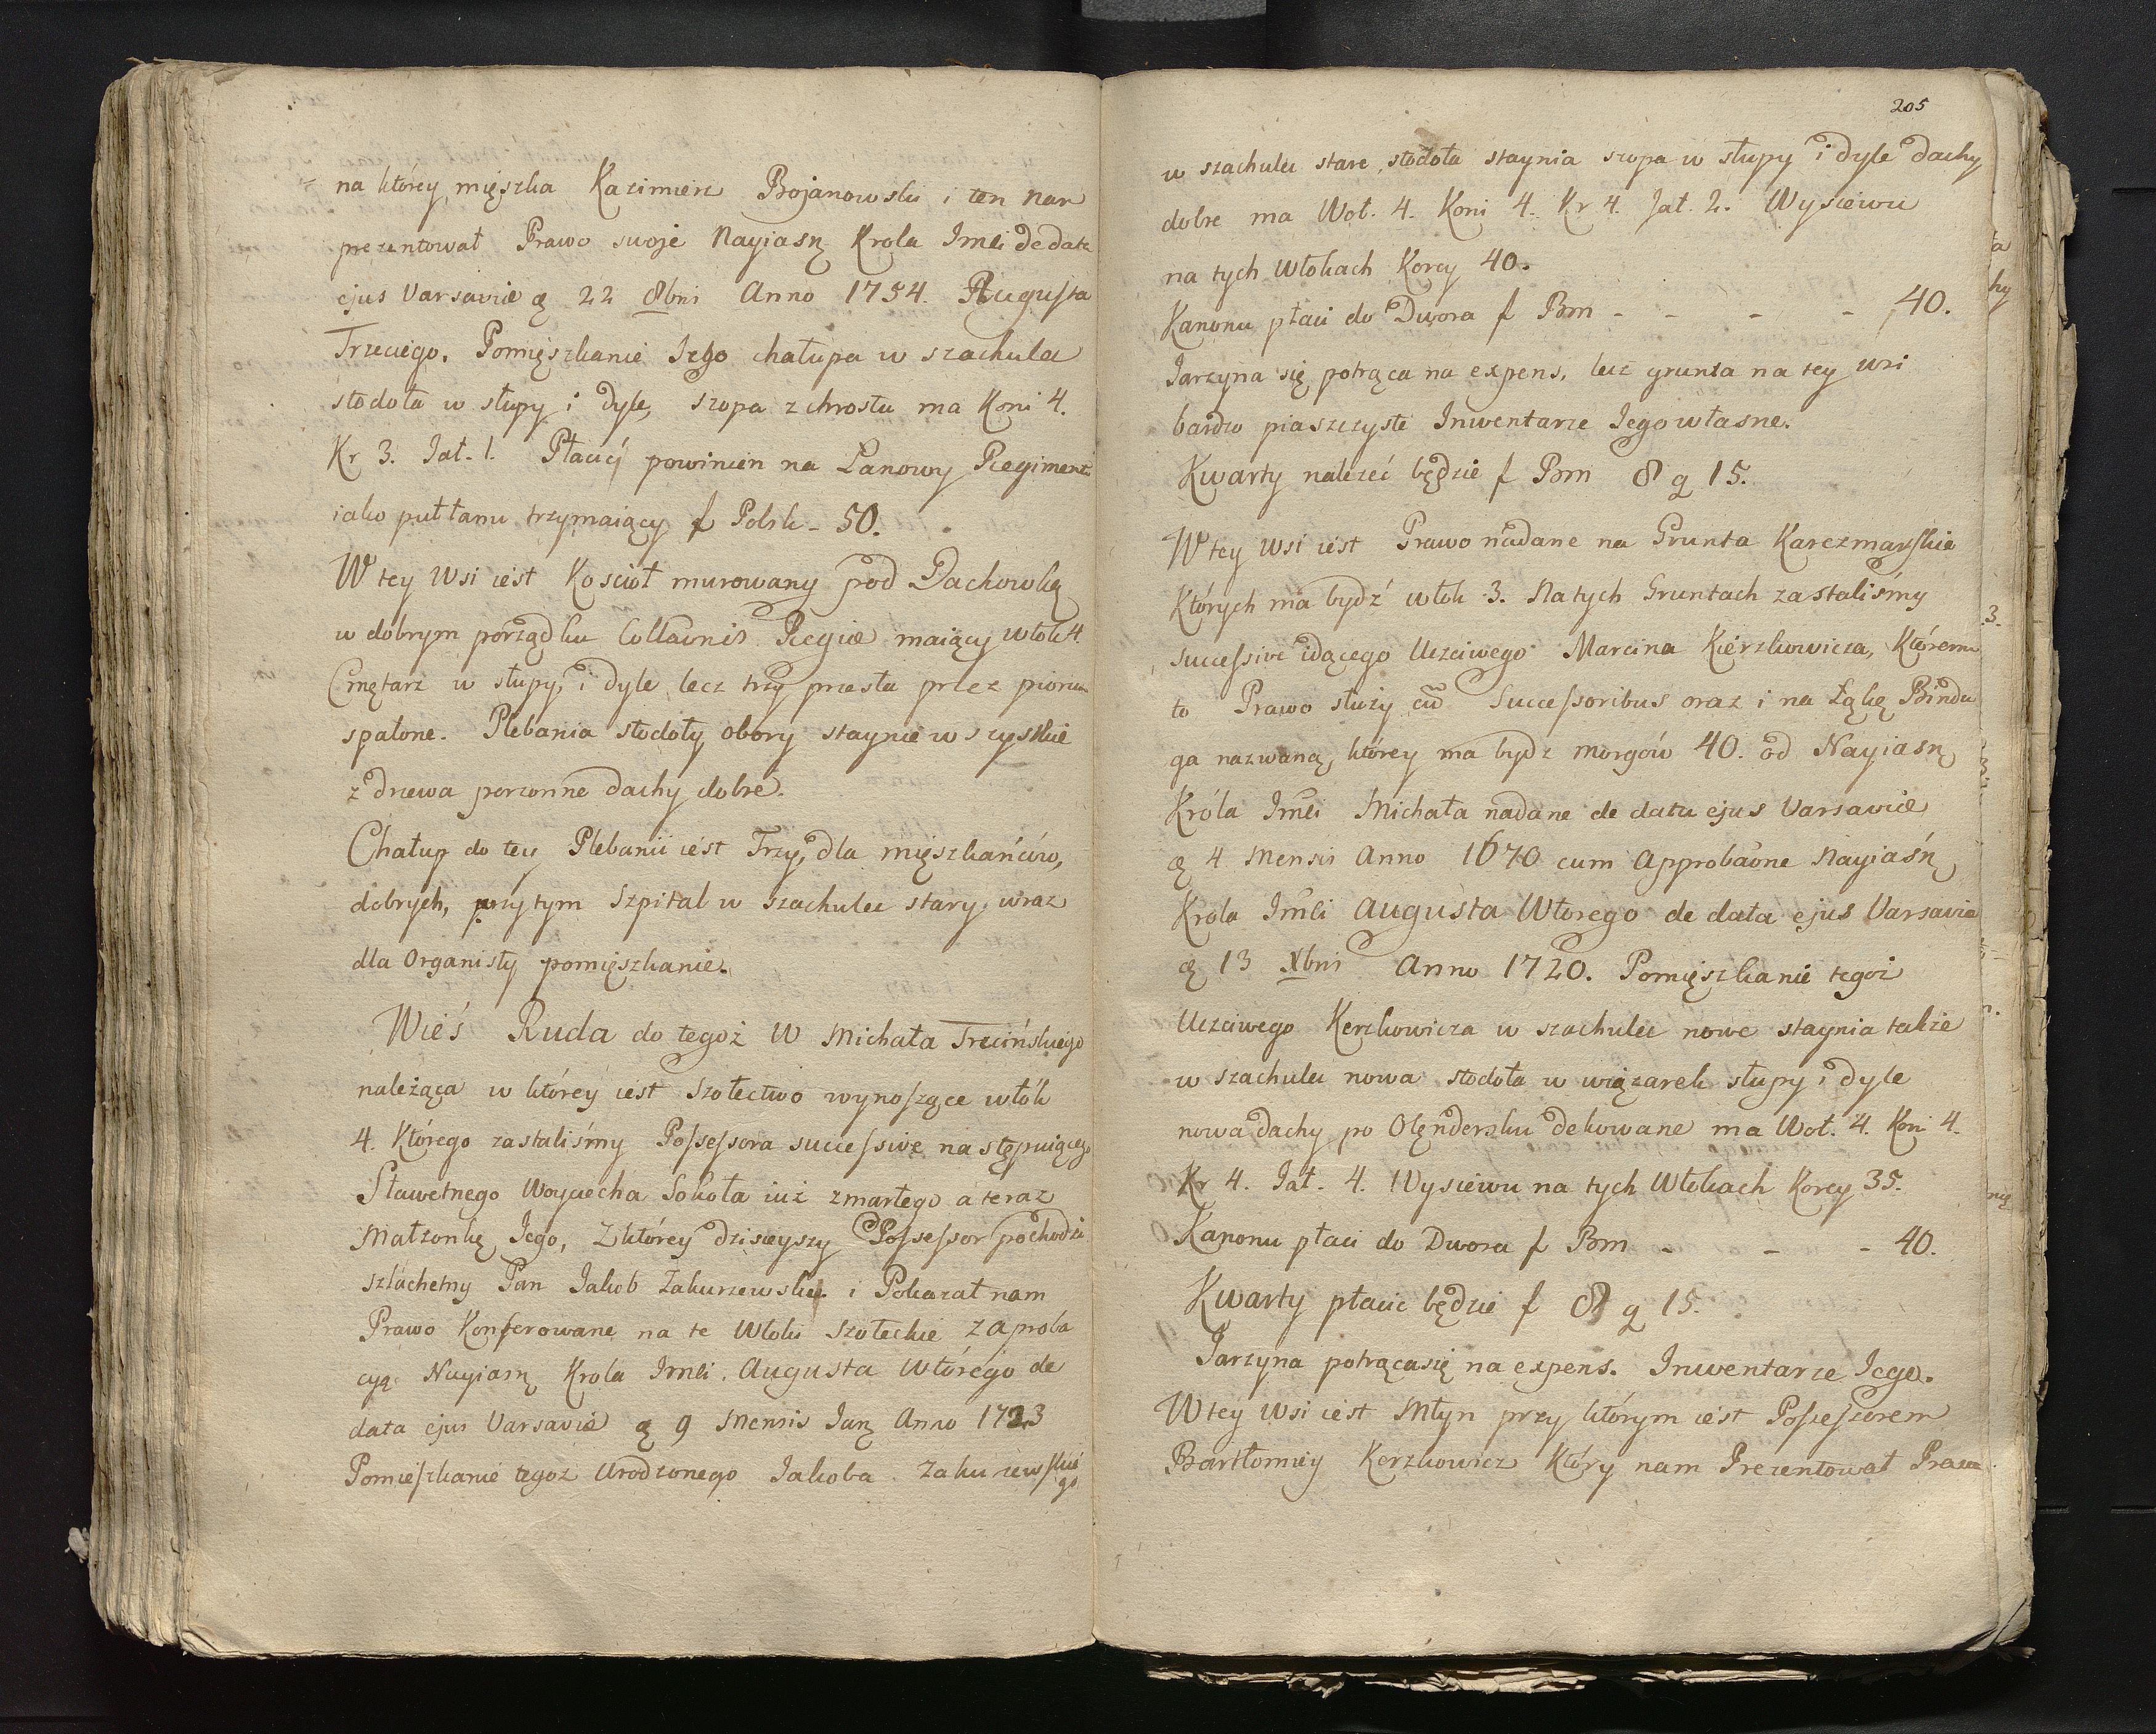 na którey mięszka Kazimierz Bojanowski i ten nam
prezentował Prawo swoje Nayiasn Krola Jmci de data
ejus Varsaviæ 22 8bris Anno 1754. Augusta
Trzeciego. Pomięszkanie Jego chałupa w szachulec
stodoła w słupy i dyle, szopa z chrostu ma Koni 4.
Kr 3. Jał. 1. Płacić powinien na Łanowy Regiment
iako puł łanu trzymaiący f Polsk - 50.
W tey Wsi iest Kościoł murowany pod Dachowką
w dobrym porządku Collaõnis Regiæ maiący włok 4
Cmętarz w słupy, i dyle lecz trzy przesła przez piorun
spalone. Plebania stodoły obory staynie wszystkie
z drzewa porzonne dachy dobre.
Chałup do tey Plebanii iest Trzy, dla mięszkańców,
dobrych, przytym Szpital w szachulec stary wraz
dla Organisty pomięszkanie.
Wieś Ruda do tegoż W Michała Trzcińskiego
należąca w którey iest Szołectwo wynoszące włók
4. Którego zastaliśmy Possessora successive nastęþuiącego
Sławetnego Woyciecha Sokoła iuż zmarłego a teraz
Małżonkę Jego, Z którey dzisieyszy Possessor pochodzi
szlachetny Pan Jakob Zakurzewski i Pokazał nam
Prawo Konferowane na te Włoki szołeckie z aproba
cyą Nayiasn Krola Jmci. Augusta Wtórego de
data ejus Varsaviæ 9 Mensis Jan Anno 1723
Pomieszkanie tegoz Urodzonego Jakoba Zakurzewskie
go
205
w szachulec stare, stodoła staynia szopa w słupy i dyle dachy
dobre ma Woł. 4. Koni 4. Kr 4. Jał. 2. Wysiewu
na tych Włokach Korcy 40.
Kanonu płaci do Dwora f Bm - - - - 40.
Jarzyna się potrąca na expens, lecz grunta na tey wsi
bardzo piaszczyste Inwentarze Jego własne.
Kwarty należeć będzie f Bm 8 g 15.
W tey Wsi iest Prawo nadane na Grunta Karczmarskie
Których ma bydź włok 3. Na tych Gruntach zastaliśmy
successive idącego Uczciwego Marcina Kierzkowicza, Któremu
to Prawo służy cũ Successoribus oraz i na Łąkę Bindu
ga nazwaną, którey ma bydz morgów 40. od Nayiasn
Króla Jmci Michała nadane de data ejus Varsaviæ
4 Mensis Anno 1670 cum Approbaõne Nayiaśn
Krola Jmci Augusta Wtorego de data ejus Varsaviæ
13 Xbris Anno 1720. Pomięszkanie tegoż
Uczciwego Kerzkowicza w szachulec nowe staynia także
w szachulec nowa stodoła w wiązarek słupy i dyle
nowa dachy po Olęndersku dekowane ma Woł. 4. Koni 4.
Kr 4. Jał. 4. Wysiewu na tych Włokach Korcy 35.
Kanonu płaci do Dwora f Bm - - - 40.
Kwarty płacić będzie f 8 g 15.
Jarzyna potrąca się na expens. Inwentarze Jego.
W tey Wsi iest Młyn przy którym iest Possessorem
Bartłomiey Kerzkowicz Który nam Prezentował Prawo